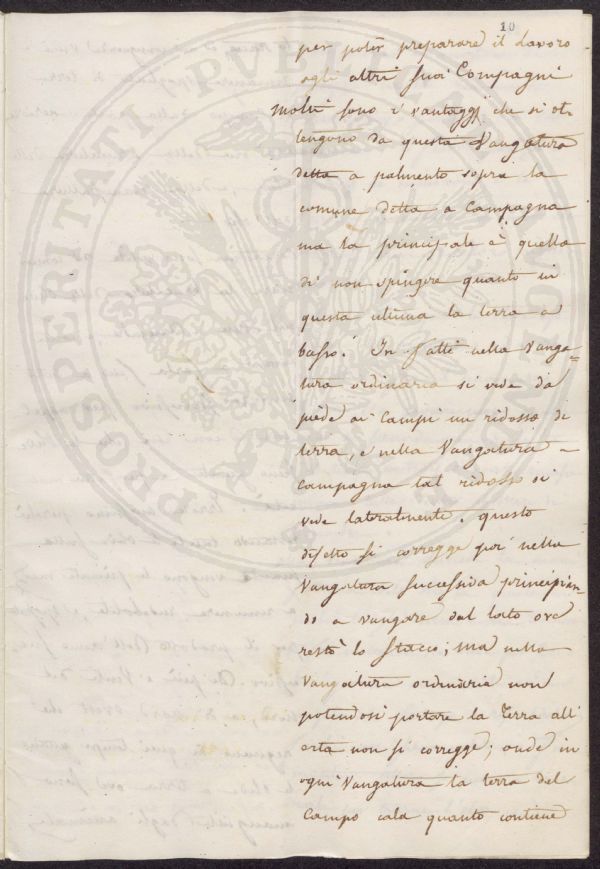 10
per poter preparare il Lavoro
agli altri suoi Compagni
Molti sono i vantaggj che si ot-
tengono da questa Vangatura
detta a palmento sopra la
comune detta a Campagna
ma la principale è quella
di non spingere quanto in
questa ultima la terra a
basso. In fatti nella Vanga-
tura ordinaria si vede da
piede ai Campi un ridosso di
terra, e nella Vangatura a
campagna tal ridosso si
vede lateralmente. questo
difetto si corregge poi nella
Vangatura successiva principian-
do a vangare dal lato ove
restò lo Stacco; Ma nella
Vangatura ordinaria non
potendosi portare la Terra all'
erta non si corregge; onde in
ogni Vangatura la terra del
Campo cala quanto contiene
PROSPERITATI PVBLICAE AVGENDAE